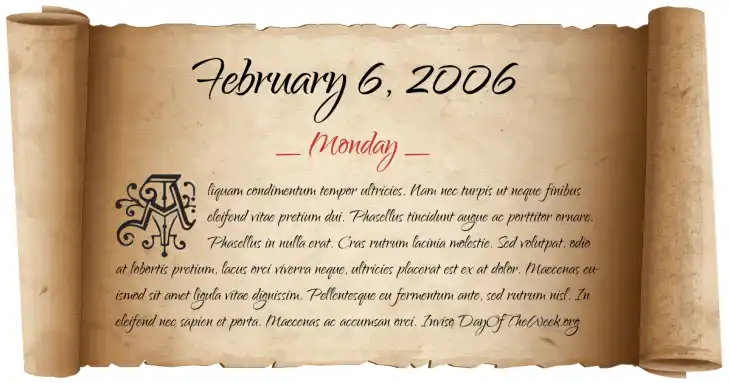 February 6, 2006
_ Monday _
Aliquam condimentum tempor ultricies. Nam nec turpis ut neque finibus
eleifend vitae pretium dui. Phasellus tincidunt augue ac porttitor ornare.
Phasellus in nulla erat. Cras rutrum lacinia molestie. Sed volutpat, odio
at lobortis pretium, lacus orci viverra neque, ultricies placerat est ex at dolor. Maecenas eu-
ismod sit amet ligula vitae dignissim. Pellentesque eu fermentum ante, sed rutrum nisl. In
eleifend nec sapien et porta. Maecenas ac accumsan orci. Inviso DayOfTheWeek.org